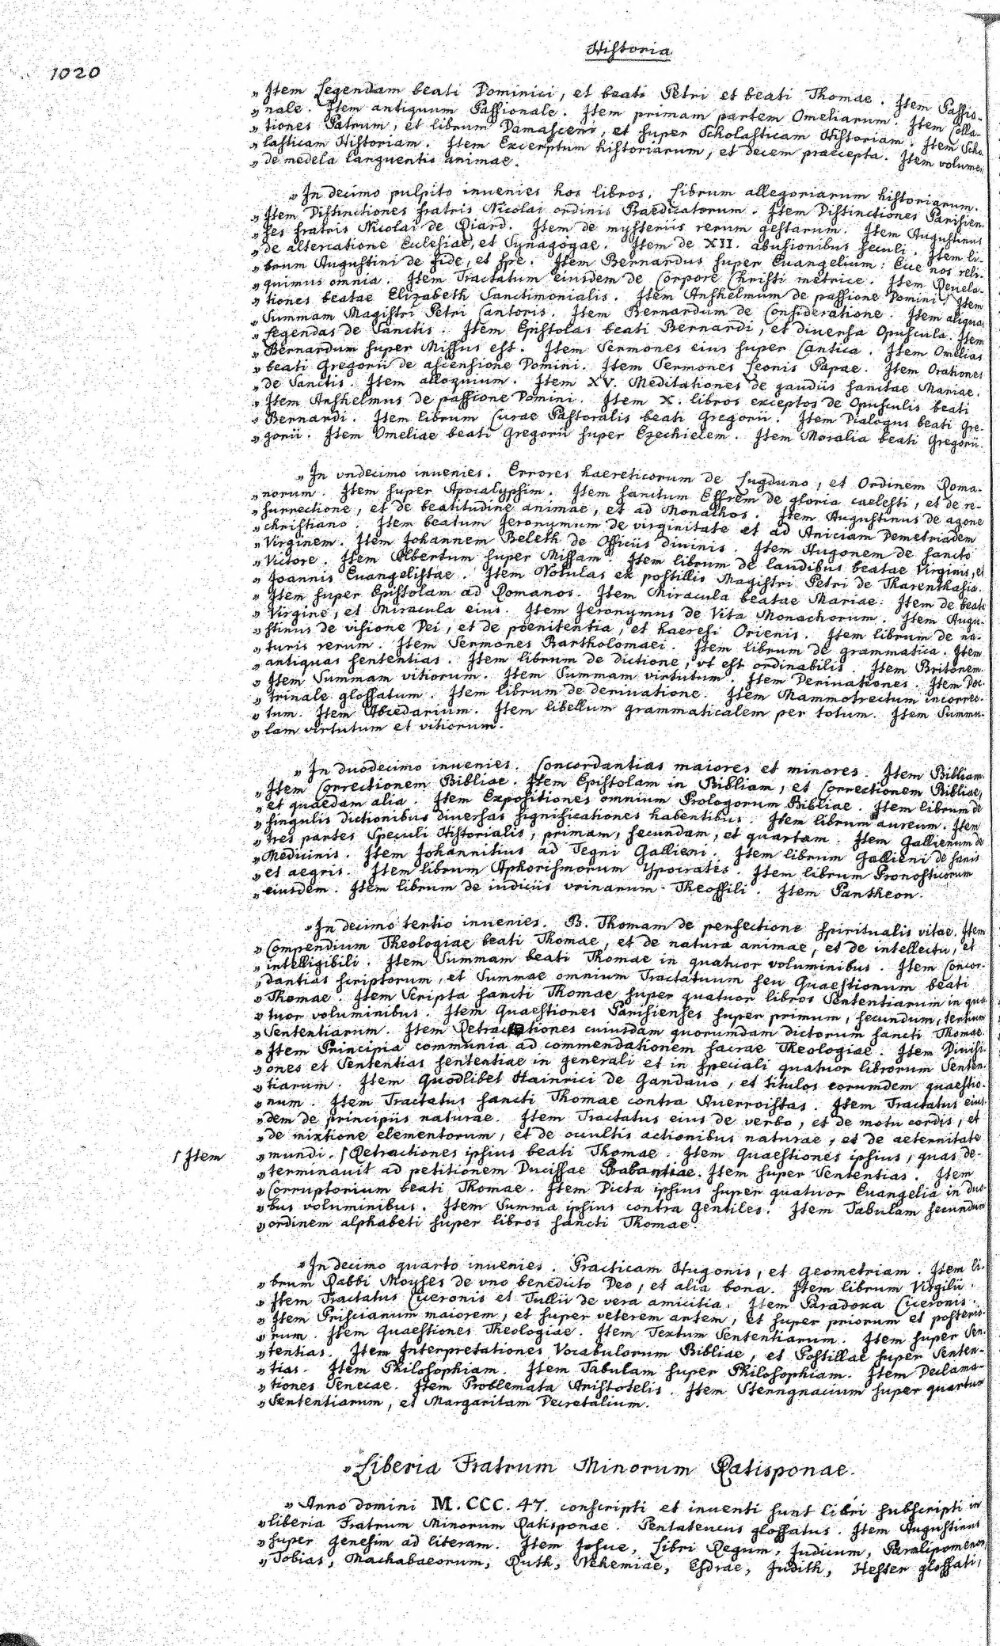 Historia
1020
" Item Legendam beati Dominici, et beati Petri et beati Thomae. Item Passio-
" nale. Item antiquum Passionale. Item primam partem Omeliarum. Item Colla-
" tiones Patrum, et librum Damasceni, et super Scholasticam Historiam. Item Scho-
" lasticam Historiam. Item Excerptum historiarum, et decem praecepta. Item volumen
" de medela languentis animae.
" In decimo pulpito invenies hos libros. Librum allegoriarum historiarum.
" Item Distinctiones fratris Nicolai ordinis Praedicatorum. Item Distinctiones Parisien-
" ses fratris Nicolai de Biard. Item de mysteriis rerum gestarum. Item Augustinus
" de altercatione Eclesiae, et Synagogae. Item de XII. abusionibus seculi. Item li-
" brum Augustini de fide, et spe. Item Bernardus super Euangelium: Ecce nos reli-
" quimus omnia. Item Tractatum eiusdem de Corpore Christi metrice. Item Reuela-
" tiones beatae Elizabeth Sanctimonialis. Item Anshelmum de passione Domini. Item
" Summam Magistri Petri Cantoris. Item Bernardum de Consideratione. Item aliquas
" Legendas de Sanctis. Item Epistolas beati Bernardi, et diuersa Opuscula. Item
" Bernardum super Missus est. Item Sermones eius super Cantica. Item Omelias
" beati Gregorii de ascensione Domini. Item Sermones Leonis Papae. Item Orationes
" de Sanctis. Item alloquium. Item XV. Meditationes de gaudiis sanctae Mariae.
" Item Anshelmus de passione Domini. Item X. libros exceptos de Opusculis beati
" Bernardi. Item librum Curae Pastoralis beati Gregorii. Item Dialogus beati Gre-
" gorii. Item Omeliae beati Gregorii super Ezechielem. Item Moralia beati Gregorii.
" In vndecimo inuenies. Errores haereticorum de Lugduno, et Ordinem Roma-
" norum. Item super Apocalypsim. Item sanctum Effrem de gloria caelesti, et de re-
" surrectione, et de beatitudine animae, et ad Monachos. Item Augustinus de agone
" christiano. Item beatum Jeronymum de virginitate et ad Aniciam Demetriadem
" Virginem. Item Johannem Beleth de Officiis diuinis. Item Hugonem de sancto
" Victore. Item Albertum super Missam. Item librum de laudibus beatae Virginis, et
" Joannis Euangelistae. Item Notulas ex postillis Magistri Petri de Tharenthasia.
" Item super Epistolam ad Romanos. Item Miracula beatae Mariae. Item de beata
" Virgine, et Miracula eius. Item Jeronymus de Vita Monachorum. Item Augu-
" stinus de visione Dei, et de poenitentia, et haeresi Orienis. Item librum de na-
" turis rerum. Item Sermones Bartholomaei. Item librum de grammatica. Item
" antiquas sententias. Item librum de dictione, vt est ordinabilis. Item Britonem.
" Item Summam vitiorum. Item Summam virtutum. Item Deriuationes. Item Doc-
" trinale glossatum. Item librum de deriuatione. Item Mammotrectum incorrec-
" tum. Item Abcedarium. Item libellum grammaticalem per totum. Item Summu-
" lam virtutum et vitiorum.
" In duodecimo inuenies. Concordantias maiores et minores. Item Bibliam.
" Item Correctionem Bibliae. Item Epistolam in Bibliam, et Correctionem Bibliae,
" et quaedam alia. Item Expositiones omnium Prologorum Bibliae. Item librum de
" singulis dictionibus diuersas significationes habentibus. Item librum aureum. Item
" tres partes Speculi Historialis, primam, secundam, et quartam. Item Gallienum de
" Medicinis. Item Johannitius ad Tegni Gallieni. Item librum Gallieni de sanis
" et aegris. Item librum Aphorismorum Ypocratis. Item librum Pronosticorum
" eiusdem. Item librum de iudiciis vrinarum Theoffili. Item Pantheon.
" In decimo tertio inuenies. B. Thomam de perfectione spiritualis vitae. Item
" Compendium Theologiae beati Thomae, et de natura animae, et de intellectu, et
" intelligibili. Item Summam beati Thomae in quatuor voluminibus. Item Concor-
" dantias scriptorum, et Summae omnium Tractatuum seu Quaestionum beati
" Thomae. Item Scripta sancti Thomae super quatuor libros Sententiarum in qua-
" tuor voluminibus. Item Quaestiones Parisienses super primum, secundum, tertium
" Sententiarum. Item Retractationes cuiusdam quorumdam dictorum sancti Thomae.
" Item Principia communia ad commendationem sacrae Theologiae. Item Diuisi-
" ones et Sententias sententiae in generali et in speciali quatuor librorum Senten-
" tiarum. Item Quodlibet Hainrici de Gandauo, et titulos eorumdem quaestio-
" num. Item Tractatus sancti Thomae contra Auerroistas. Item Tractatus eius-
" dem de principiis naturae. Item Tractatus eius de verbo, et de motu cordis, et
" de mixtione elementorum, et de occultis actionibus naturae, et de aeternitate
⌈ Item
" mundi. ⌈ Retractiones ipsius beati Thomae. Item Quaestiones ipsius, quas de-
" terminauit ad petitionem Ducissae Brabantiae. Item super Sententias. Item
" Corruptorium beati Thomae. Item Dicta ipsius super quatuor Euangelia in duo-
" bus voluminibus. Item Summa ipsius contra Gentiles. Item Tabulam secundum
" ordinem alphabeti super libros sancti Thomae.
" In decimo quarto inuenies. Practicam Hugonis, et Geometriam. Item li-
" brum Rabbi Moyses de vno benedicto Deo, et alia bona. Item librum Virgilii.
" Item Tractatus Ciceronis et Tullii de vera amicitia. Item Paradoxa Ciceronis.
" Item Priscianum maiorem, et super veterem artem, et super priorum et posterio-
" rum. Item Quaestiones Theologiae. Item Textum Sententiarum. Item super Sen-
" tentias. Item Interpretationes Vocabulorum Bibliae, et Postillae super Senten-
" tias. Item Philosophiam. Item Tabulam super Philosophiam. Item Declama-
" tiones Senecae. Item Problemata Aristotelis. Item Stenngnacium super quartum
" Sententiarum, et Margaritam Decretalium.
" Liberia Fratrum Minorum Ratisponae.
" Anno domini M. CCC. 47. conscripti et inuenti sunt libri subscripti in
" liberia Fratrum Minorum Ratisponae. Pentateucus glossatus. Item Augustinus
" super Genesim ad literam. Item Josue, Libri Regum, Judicum, Paralipomenon,
" Tobias, Machabaeorum, Ruth, Nehemiae, Esdrae, Judith, Hester glossati,